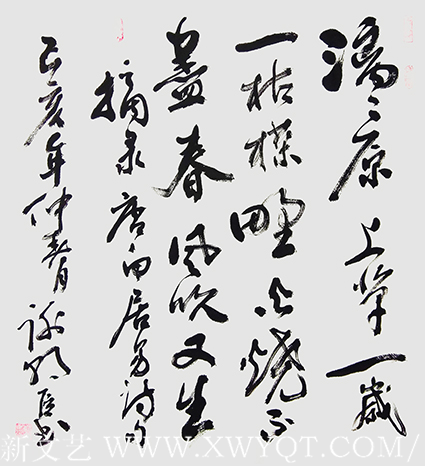 漓〻原上草一歲
一枯榮野火燒不
盡春風吹又生
摘录唐白居易詩句
亥年仲春月書
新文艺 WWW.XWYQT.COM/